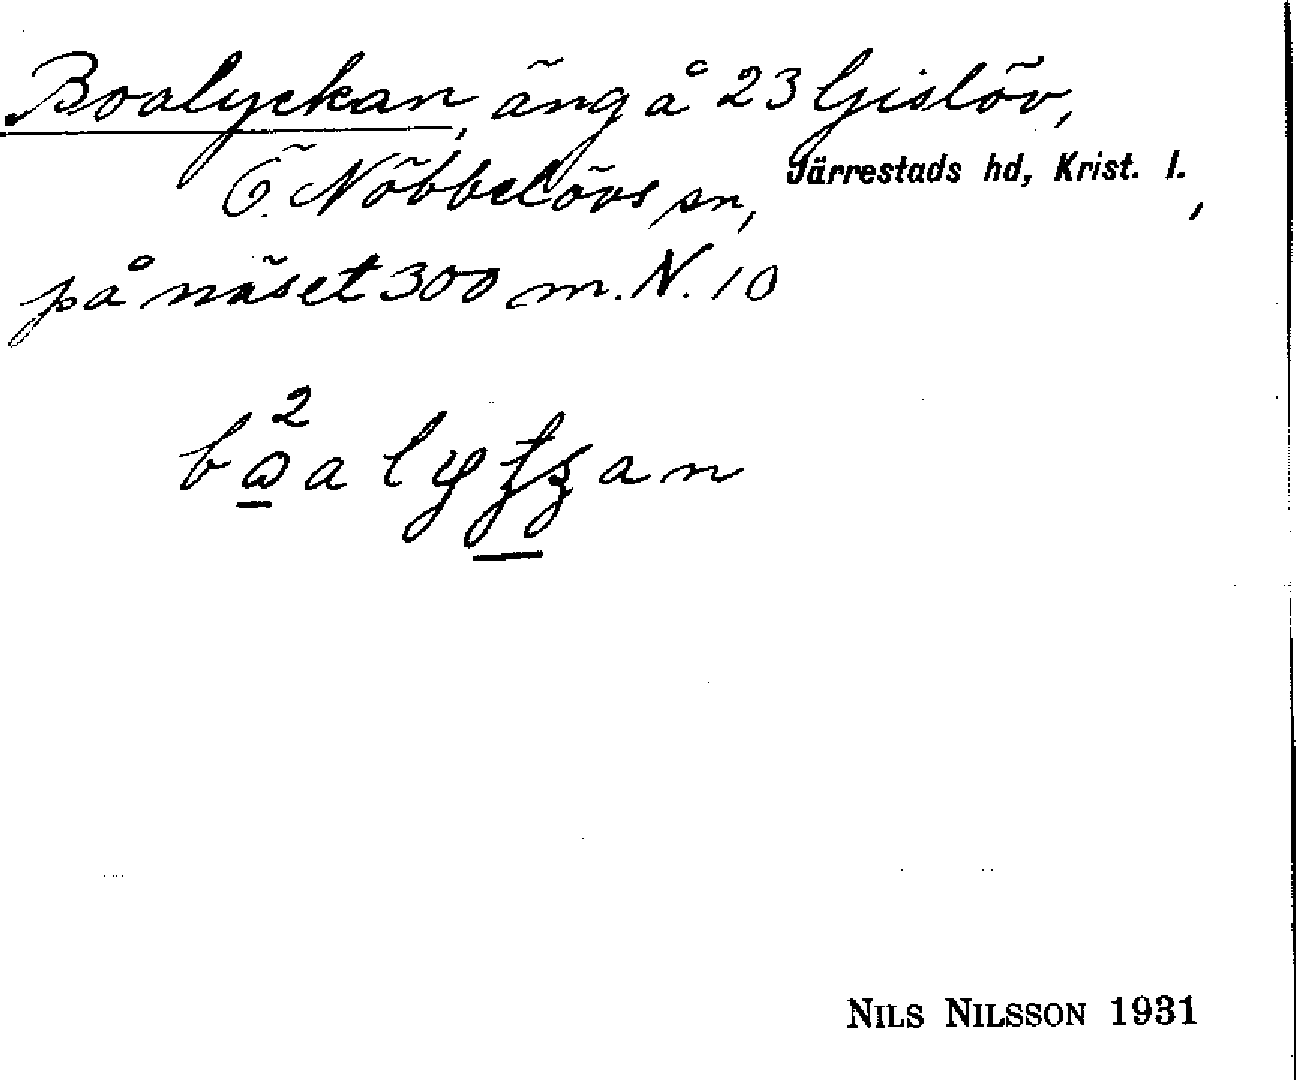 Boalyckan, äng å 23 Gislöv,
Ö. Nöbbelövs sn, Järrestads hd, Krist. l.,
på näset 300 m. N. 10
2
NILS NILSSON 1931